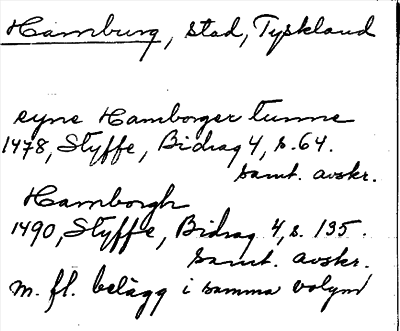 Hamburg, stad, Tyskland
eyne Hamborger tunne
1478, Styffe, Bidrag 4, s. 64.
samt. avskr.
Hamborgh
1490, Styffe, Bidrag 4, s. 135.
samt. avskr.
m. fl. belägg i samma volym